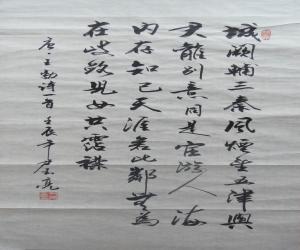 城闕輔三秦風煙望五津與
君離別意同是宦游人海
内存知己天涯若比鄰無為
在歧路兒女共霑襟
唐王勃诗一首壬辰年